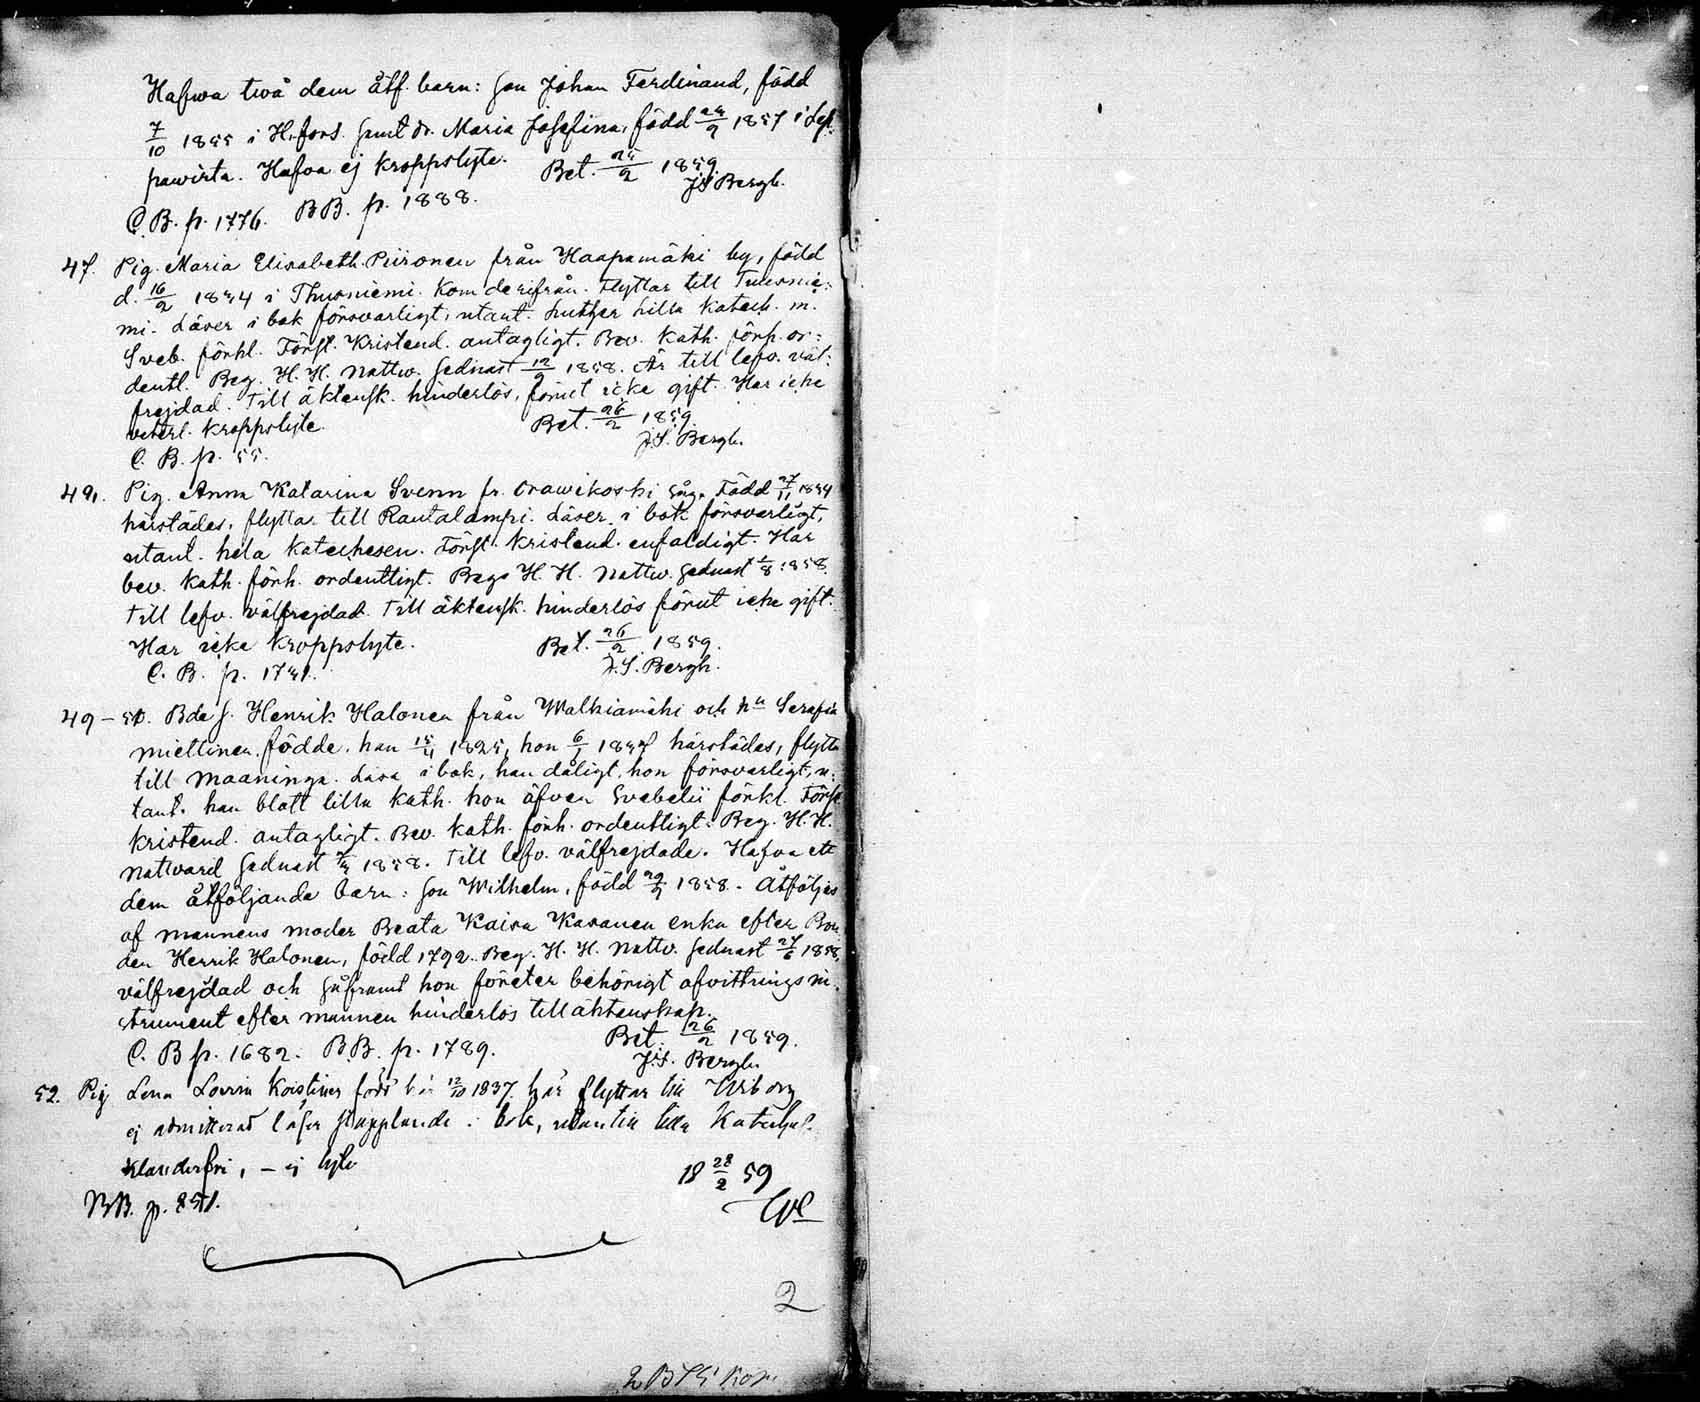 Hafwa twå dem åtf. barn: Son Johan Ferdinand, född
7/10 1855 i H.fors. Samt dr. Maria Josefina, född 24/2 1857 i Lep-
pawirta. Hafva ej kroppslyte. Bet. 25/2 1859.
J.S. Bergh.
C.B. p. 1776. BB. p. 1888.
47. Pig. Maria Elisabeth Piironen från Haapamäki by, född
d. 16/2 1834 i Thusniemi. Kom derifrån. Flyttar till Tuusnie-
mi. Läser i bok försvarligt, utant. Luther lilla katech. m.
Sveb. förkl. Först. Kristend. antagligt. Bev. kath. förh. or:
dentl. Beg. H. H. Nattw. Sednast 12/9 1858. Är till lefv. väl:
frejdad. Till äktensk. hinderlös, förut icke gift. Har icke
veterl. kroppslyte. Bet. 26/2 1859
J.S. Bergh.
C. B. p. 55.
Pig. Anna Katarina Svenn fr. Orawikoski såg. Född 27/11 1834
härstädes, flyttar till Rautalampi. Läser i bok försvarligt,
utant. hela katechesen. Först. kristend. enfaldigt. Har
bev. kath. förh. ordentligt. Begs H. H. Nattw. Sednast 1/8 1858.
Till lefv. välfrejdad. Till äktensk. hinderlös förut icke gift.
Har icke kroppslyte. Bet. 26/2 1859.
J.S. Bergh.
C. B. p. 1731.
49 – 51. Bde S. Henrik Halonen från Walkiamäki och hu Serafia
Miettinen, födde, han 15/4 1825, hon 6/1 1837 härstädes, flytta
till Maaninga. Läsa i bok, han dåligt, hon försvarligt, u:
tant. han blott lilla kath. hon äfven Svebelii förkl. Först
kristend. antagligt. Bev. kath. förh. ordentligt. Beg. H. H.
Nattvard Sednast 1858. Till lefv. välfrejdade. Hafva ett
dem åtföljande barn: Son Wilhelm, född 1858. Åtföljes
af mannens moder Beata Kaisa Kasanen enka efter Bon
den Henrik Halonen, född 1792. Beg. H. H. Nattv. Sednast 24/6 1858,
välfrejdad och Såframt hon företer behörigt afvittrings in
strument efter mannen hinderlös till äktenskap.
C. B p. 1682. B.B. p. 1789. Bet. 26/2 1859.
J.S. Bergh.
52. Pig Lena Lovisa Koistinen född här 12/10 1837. här flyttar till Wiborg
ej admitterad läser stapplande i bok, utantill lilla Kateches.
Klanderfri, – ej lyte
18 28/2 59
BB. p. 851.
2